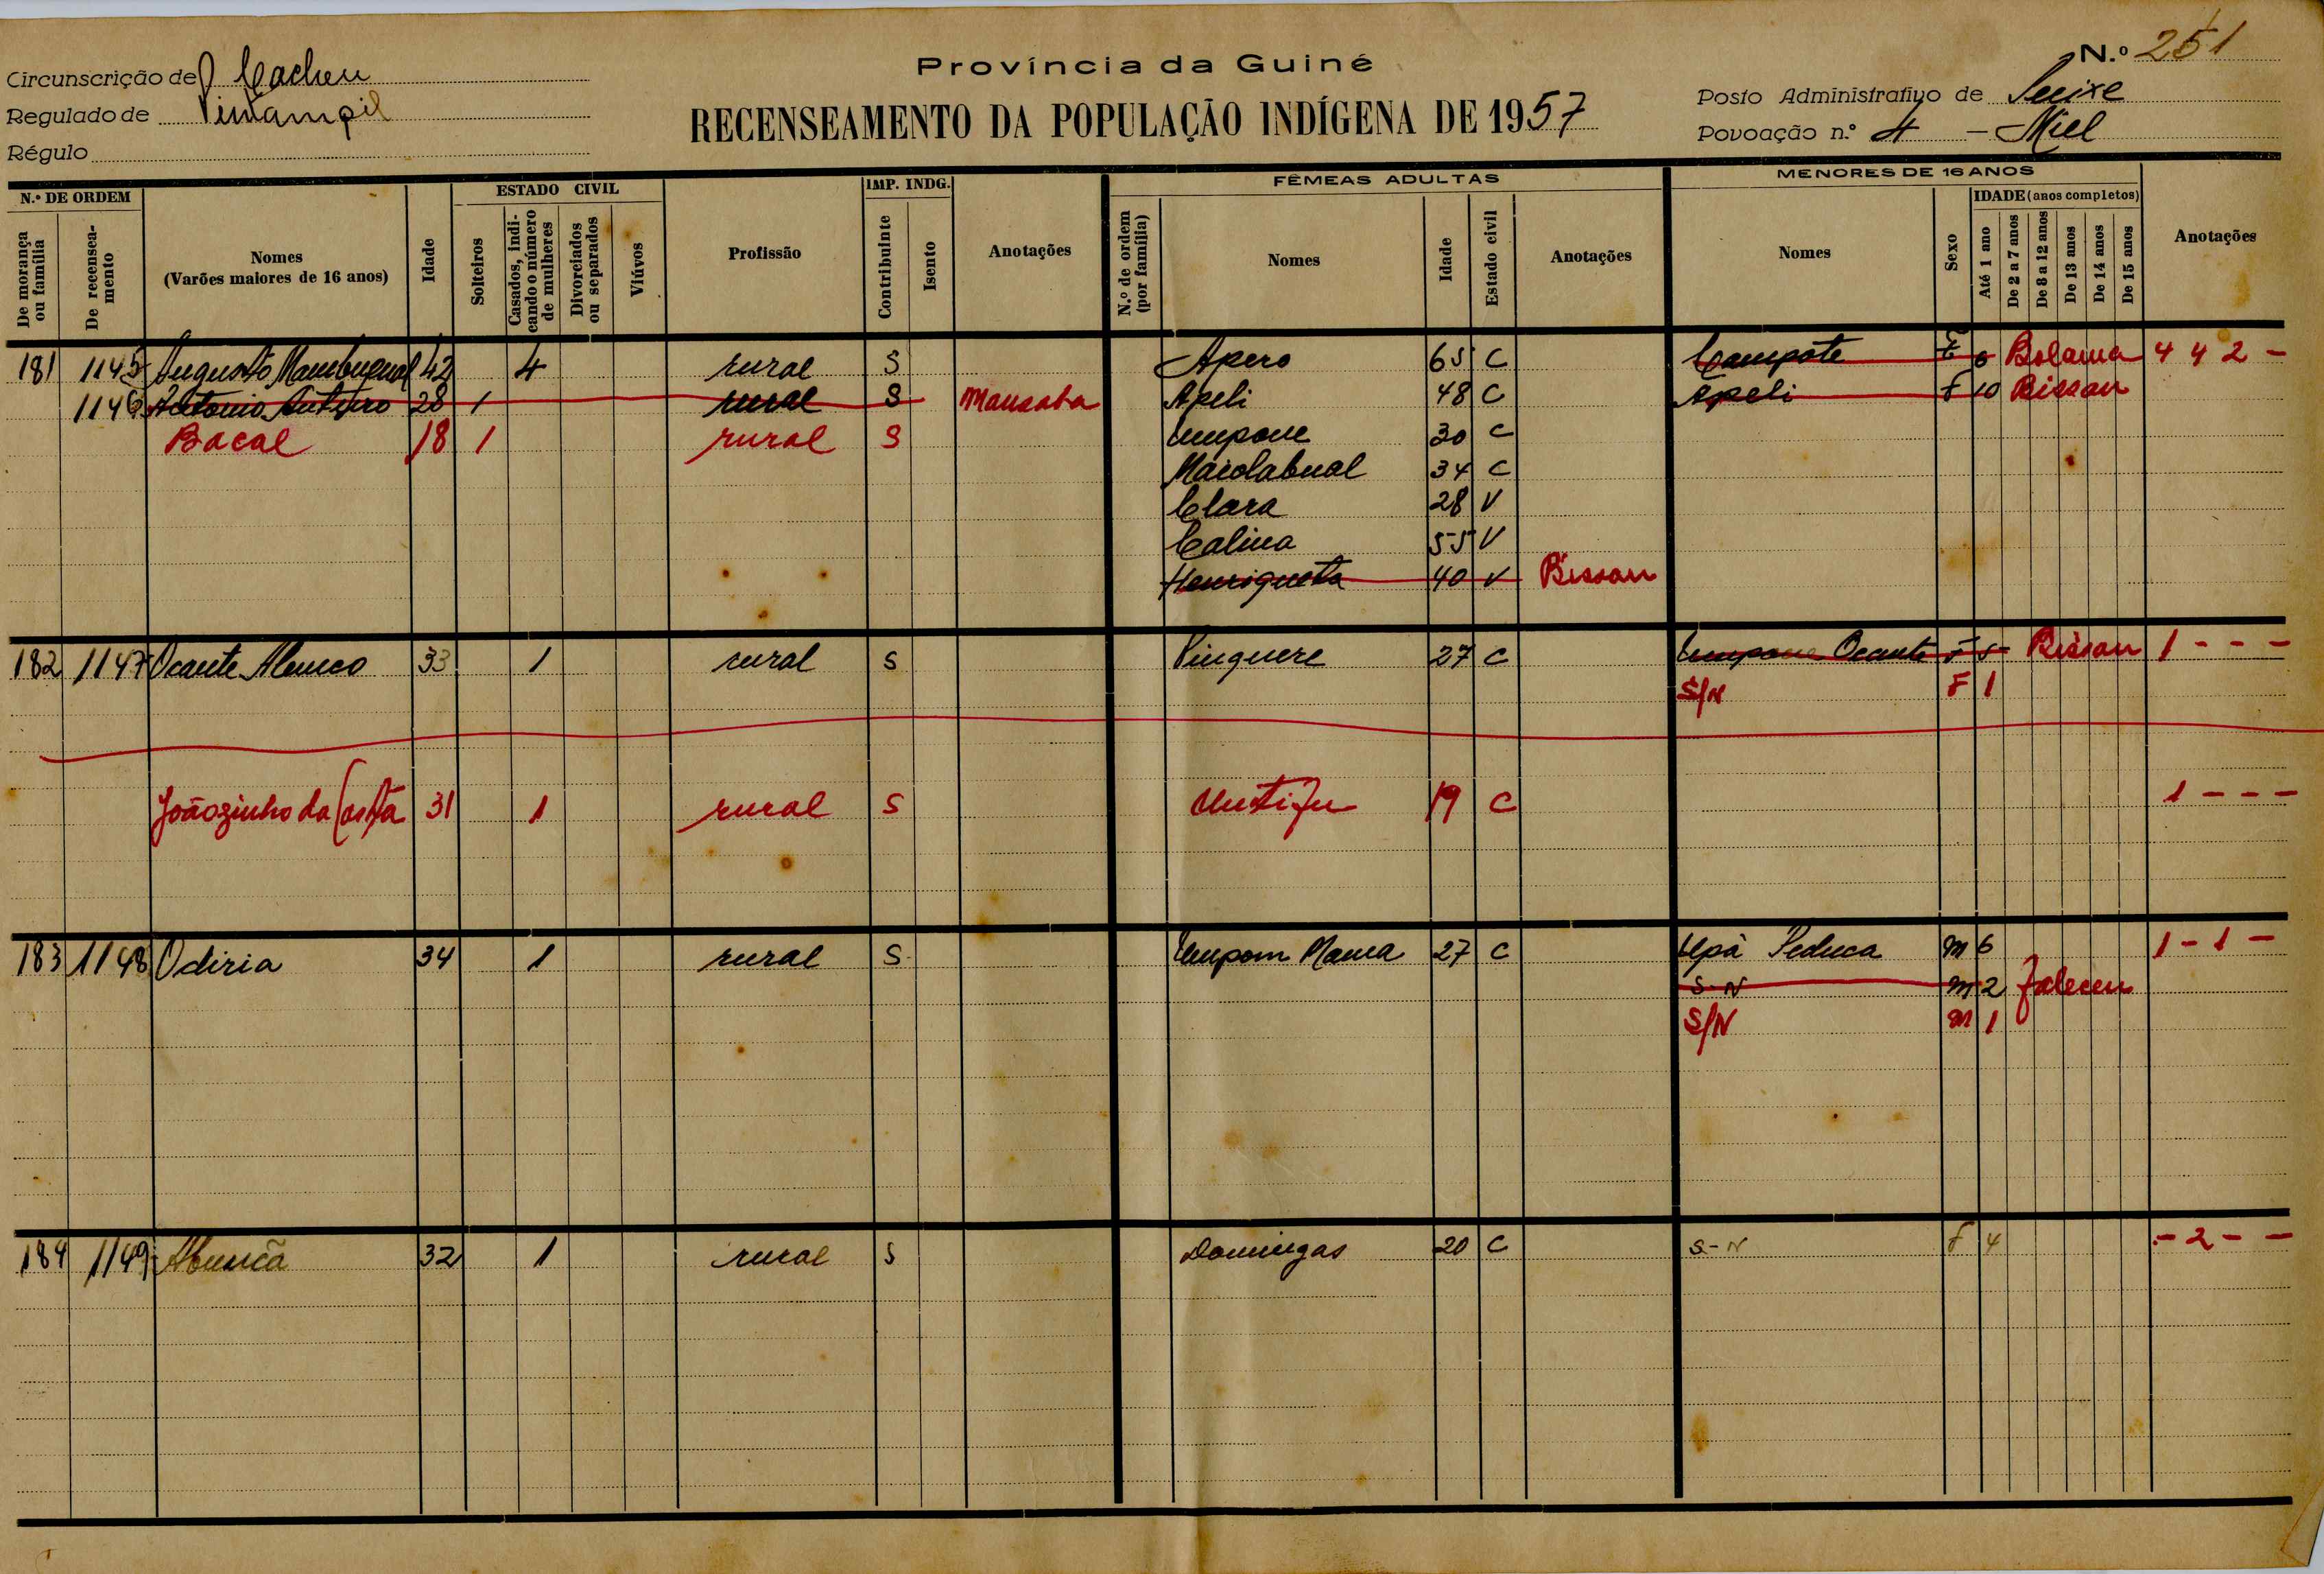 Província da Guiné
N.º 251
Circunscrição de Cacheu
Regulado de
Régulo
RECENSEAMENTO DA POPULAÇÃO INDÍGENA DE 1957
Posto Administrativo de
Povoação n.º 4 - Miel
N.º DE ORDEM
De morança ou família
De recenseamento
Nomes (Varões maiores de 16 anos)
Idade
ESTADO CIVIL
Solteiros
Casados, indicando o número de mulheres
Divorciados ou separados
Viúvos
Profissão
IMP. INDG.
Contribuinte
Isento
Anotações
FÊMEAS ADULTAS
N.º de ordem (por família)
Nomes
Idade
Estado civil
Anotações
MENORES DE 16 ANOS
Nomes
Sexo
IDADE (anos completos)
Até 1 ano
De 2 a 7 anos
De 8 a 12 anos
De 13 anos
De 14 anos
De 15 anos
Anotações
181 1145 Augusto 42 4 rural S Apero 65 C Campote F 6 Bolama 4 4 2 -
1146 28 1 rural S Mansaba Apeli 48 C Apeli F 10 Bissau
Bacal 18 1 rural S Umpone 30 C
Maiolabual 34 C
Clara 28 V
Calina 55 V
Henriqueta 40 V Bissau
182 1147 Ocante 33 1 rural S Pinguere 27 C Umpone Ocante F 5 Bissau 1 - - -
S/N F 1
Joãozinho da Costa 31 1 rural S 19 C 1 - - -
183 1148 Odiria 34 1 rural S 27 C Upá M 6 1 - 1 -
S-N M 2 faleceu
S/N M 1
184 1149 32 1 rural S Domingas 20 C S-N F 4 - 2 - -